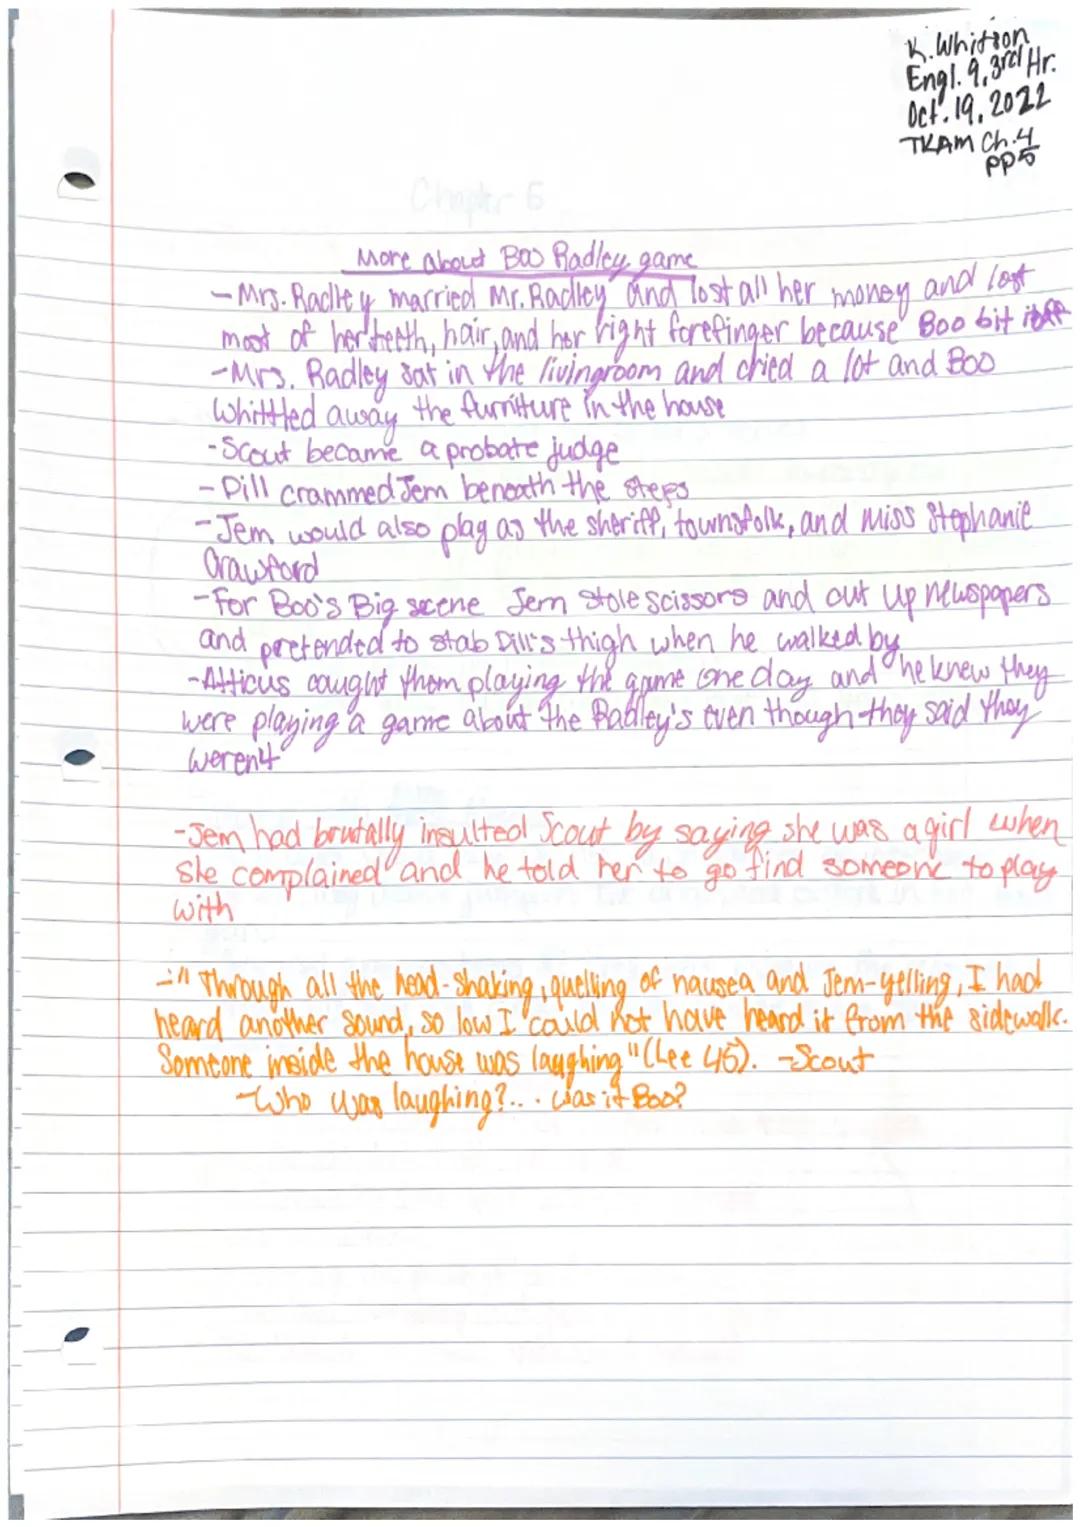 K. Whitson
Engl. 9, 3rd Hr.
Oct. 19, 2022
TKAM Ch. 4
pp5
Chapter 6
More about Boo Radley game
- Mrs. Radley married Mr. Radley and lost all her money and lost
most of her teeth, hair, and her right forefinger because Boo bit it off
- Mrs. Radley sat in the livingroom and cried a lot and Boo
whittled away the furniture in the house
- Scout became a probate judge
- Dill crammed Jem beneath the steps
- Jem would also play as the sheriff, townsfolk, and Miss Stephanie
Crawford
- For Boo's Big scene Jem stole scissors and cut up newspapers
and pretended to stab Dill's thigh when he walked by
- Atticus caught them playing the game one day and he knew they
were playing a game about the Radley's even though they said they
weren't
- Jem had brutally insulted Scout by saying she was a girl when
she complained and he told her to go find someone to play
with
- "Through all the head-shaking, quelling of nausea and Jem-yelling, I had
heard another sound, so low I could not have heard it from the sidewalk.
Someone inside the house was laughing" (Lee 45). - Scout
- Who was laughing?... was it Boo?